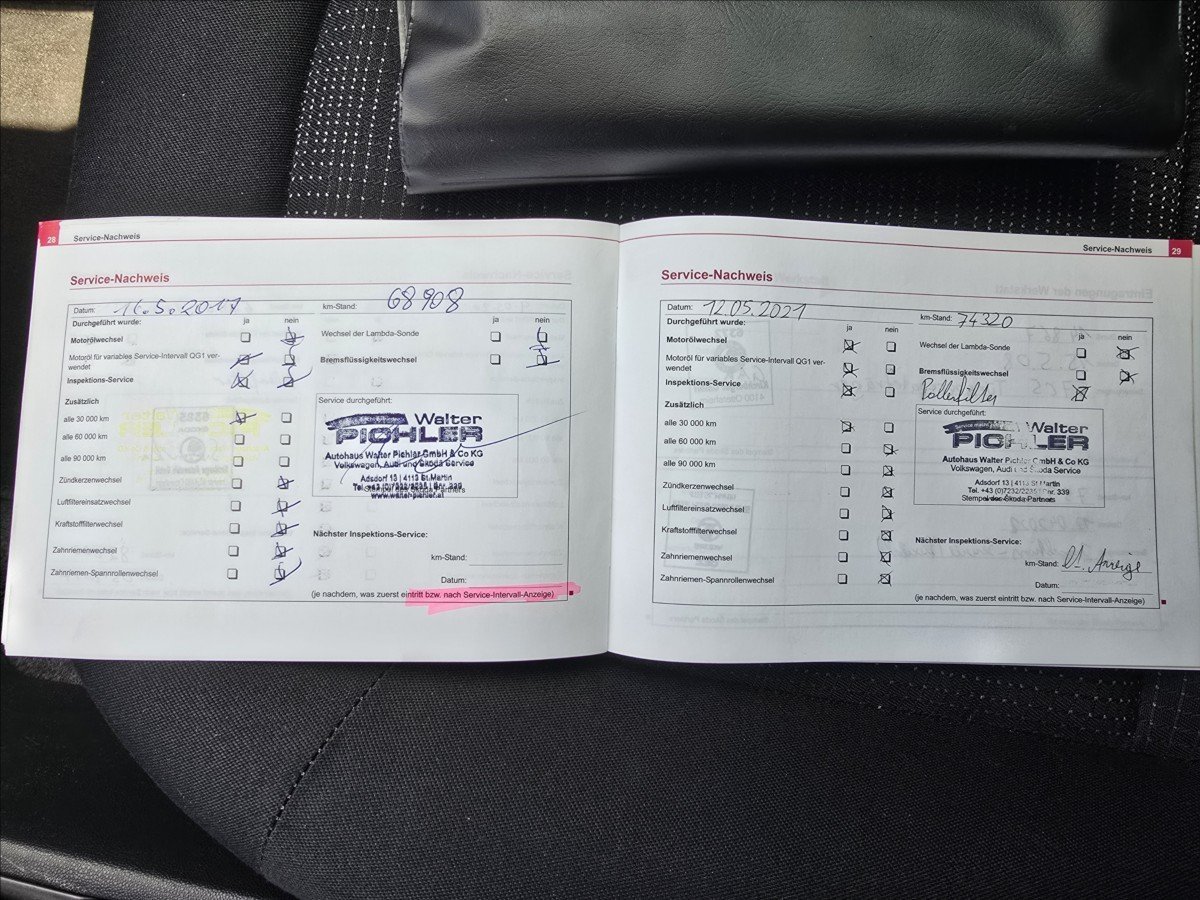 28 Service-Nachweis
Service-Nachweis
Datum: 11.5.2017 km-Stand: 68908
Durchgeführt wurde: ja nein
Motorölwechsel
Motoröl für variables Service-Intervall QG1 ver-
wendet
Inspektions-Service
Zusätzlich
alle 30 000 km
alle 60 000 km
alle 90 000 km
Zündkerzenwechsel
Luftfiltereinsatzwechsel
Kraftstofffilterwechsel
Zahnriemenwechsel
Zahnriemen-Spannrollenwechsel
ja nein
Wechsel der Lambda-Sonde
Bremsflüssigkeitswechsel
Service durchgeführt:
Walter
PICHLER
Autohaus Walter Pichler GmbH & Co KG
Volkswagen, Audi und Skoda Service
Adsdorf 13 | 4113 St.Martin
Tel. +43 (0)7232/2235 | Fnr. 339
www.walter-pichler.at
Nächster Inspektions-Service:
km-Stand:
Datum:
(je nachdem, was zuerst eintritt bzw. nach Service-Intervall-Anzeige)
Service-Nachweis 29
Service-Nachweis
Datum: 12.05.2021 km-Stand: 74320
Durchgeführt wurde: ja nein
Motorölwechsel
Motoröl für variables Service-Intervall QG1 ver-
wendet
Inspektions-Service
Zusätzlich
alle 30 000 km
alle 60 000 km
alle 90 000 km
Zündkerzenwechsel
Luftfiltereinsatzwechsel
Kraftstofffilterwechsel
Zahnriemenwechsel
Zahnriemen-Spannrollenwechsel
ja nein
Wechsel der Lambda-Sonde
Bremsflüssigkeitswechsel
Pollenfilter
Service durchgeführt:
Walter
PICHLER
Autohaus Walter Pichler GmbH & Co KG
Volkswagen, Audi und Skoda Service
Adsdorf 13 | 4113 St.Martin
Tel. +43 (0)7232/2235 | Fnr. 339
Stempel des Škoda Partners
Nächster Inspektions-Service:
km-Stand: lt. Anzeige
Datum:
(je nachdem, was zuerst eintritt bzw. nach Service-Intervall-Anzeige)